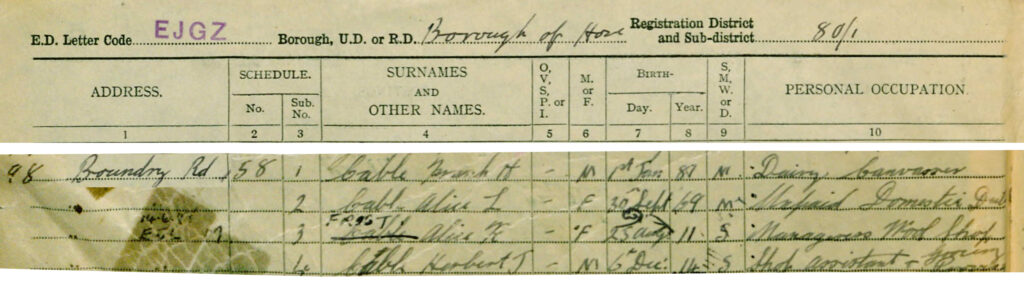 E.D. Letter Code EJGZ Borough, U.D. or R.D. Borough of Hove Registration District and Sub-district 80/1
ADDRESS. SCHEDULE. No. Sub. No. SURNAMES AND OTHER NAMES. O, V, S, P. or I. M. or F. BIRTH- Day. Year. S, M, W, or D. PERSONAL OCCUPATION.
1 2 3 4 5 6 7 8 9 10
98 Boundry Rd 158 1 Cable Frank H - M 1st Jan 87 M Dairy Canvasser
2 Cable Alice L - F 30 Sept 69 M Unpaid Domestic
3 Alice - F Aug 11 S Manageress Wool Shop
4 Cable Herbert J - M 6 Dec 14 S Shop assistant -